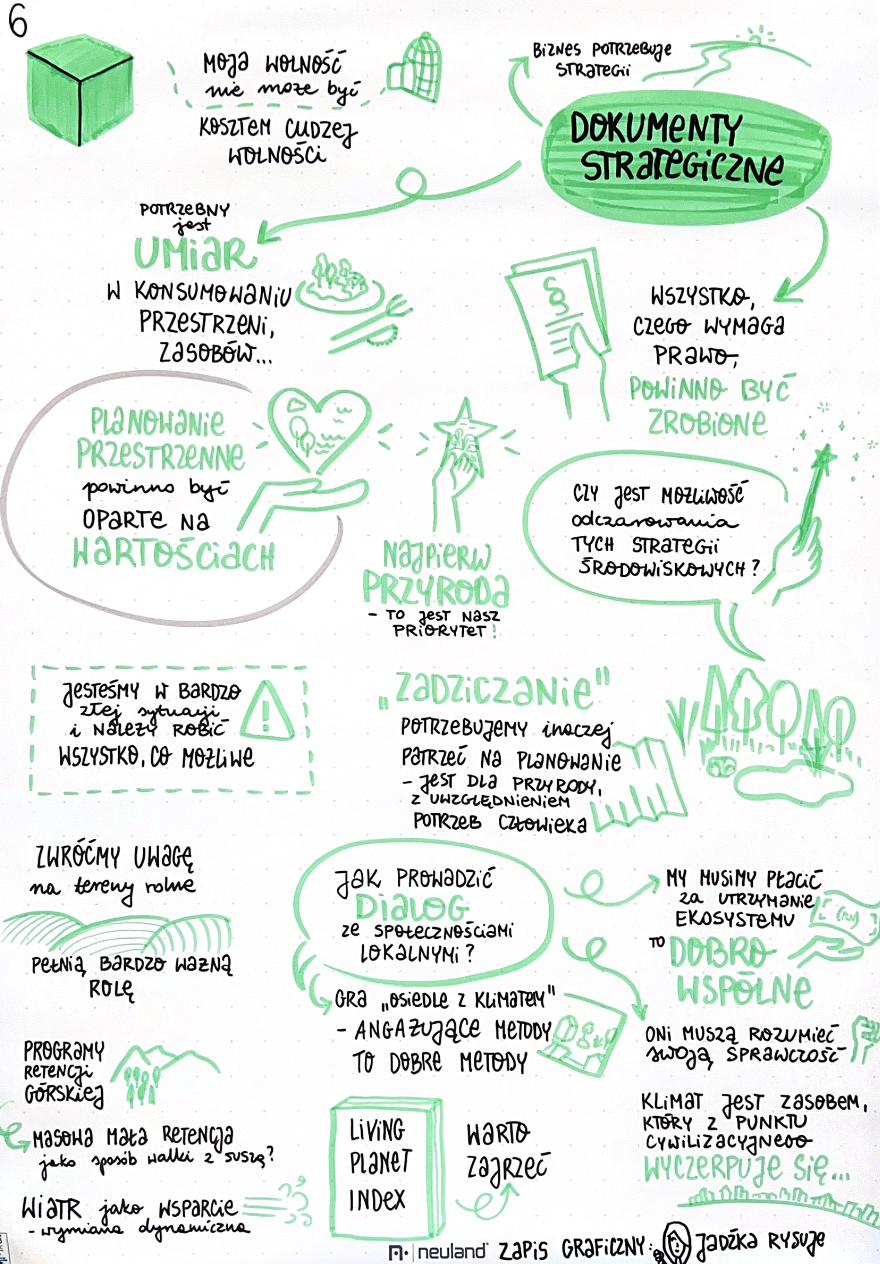 6
MOJA WOLNOŚĆ
nie może być
KOSZTEM CUDZEJ
WOLNOŚCI
BIZNES POTRZEBUJE
STRATEGII
DOKUMENTY
STRATEGICZNE
POTRZEBNY
jest
UMIAR
W KONSUMOWANIU
PRZESTRZENI,
ZASOBÓW...
WSZYSTKO,
CZEGO WYMAGA
PRAWO,
POWINNO BYĆ
ZROBIONE
PLANOWANIE
PRZESTRZENNE
powinno być
OPARTE NA
WARTOŚCIACH
NAJPIERW
PRZYRODA
- TO JEST NASZ
PRIORYTET!
CZY JEST MOŻLIWOŚĆ
odczarowania
TYCH STRATEGII
ŚRODOWISKOWYCH?
JESTEŚMY W BARDZO
złej sytuacji
i NALEŻY ROBIĆ
WSZYSTKO, CO MOŻLIWE
„ZADZICZANIE"
POTRZEBUJEMY inaczej
PATRZEĆ NA PLANOWANIE
- JEST DLA PRZYRODY,
Z UWZGLĘDNIENIEM
POTRZEB CZŁOWIEKA
ZWRÓĆMY UWAGĘ
na tereny rolne
PEŁNIĄ BARDZO WAŻNĄ
ROLĘ
JAK PROWADZIĆ
DIALOG
ZE SPOŁECZNOŚCIAMI
LOKALNYMI?
GRA „OSIEDLE Z KLIMATEM"
- ANGAŻUJĄCE METODY
TO DOBRE METODY
MY MUSIMY PŁACIĆ
ZA UTRZYMANIE
EKOSYSTEMU
TO DOBRO
WSPÓLNE
ONI MUSZĄ ROZUMIEĆ
SWOJĄ SPRAWCZOŚĆ
PROGRAMY
RETENCJI
GÓRSKIEJ
MASOWA MAŁA RETENCJA
jako sposób walki z suszą?
WIATR jako WSPARCIE
- wymiana dynamiczna
LIVING
PLANET
INDEX
WARTO
ZAJRZEĆ
KLIMAT JEST ZASOBEM,
KTÓRY Z PUNKTU
CYWILIZACYJNEGO
WYCZERPUJE SIĘ...
neuland ZAPIS GRAFICZNY: JADŹKA RYSUJE